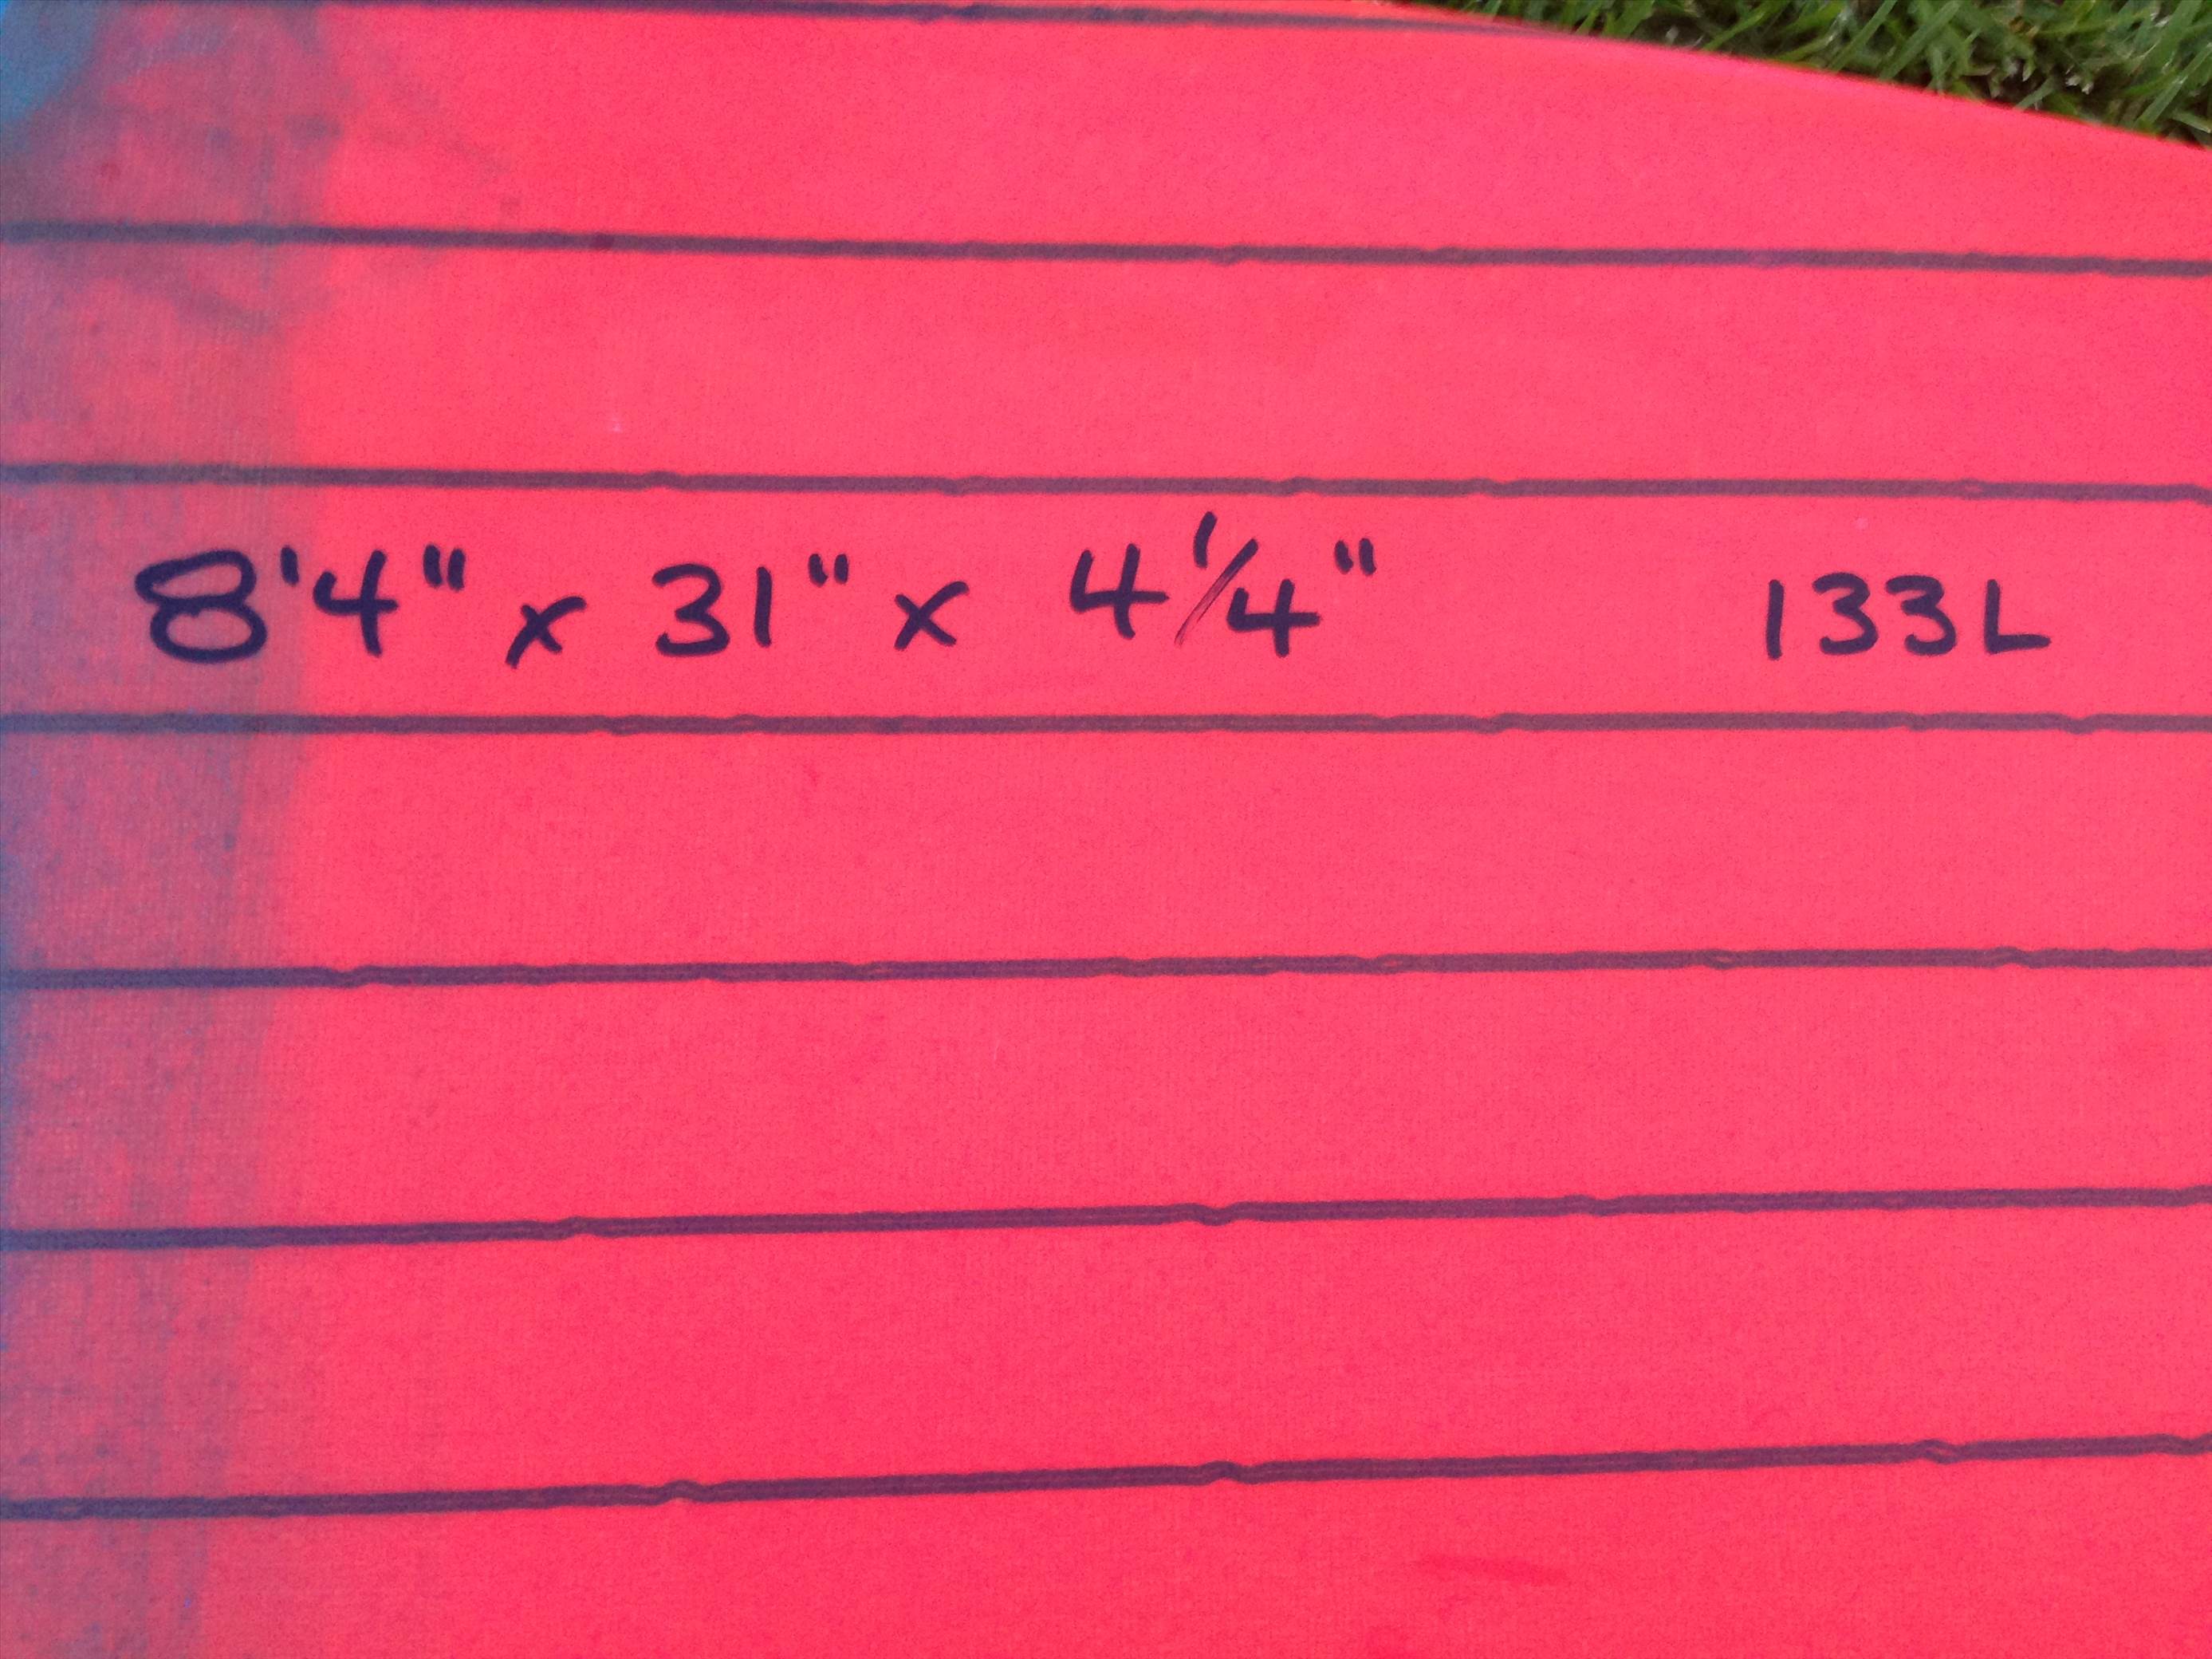 8'4" x 31" x 4 1/4" 133L